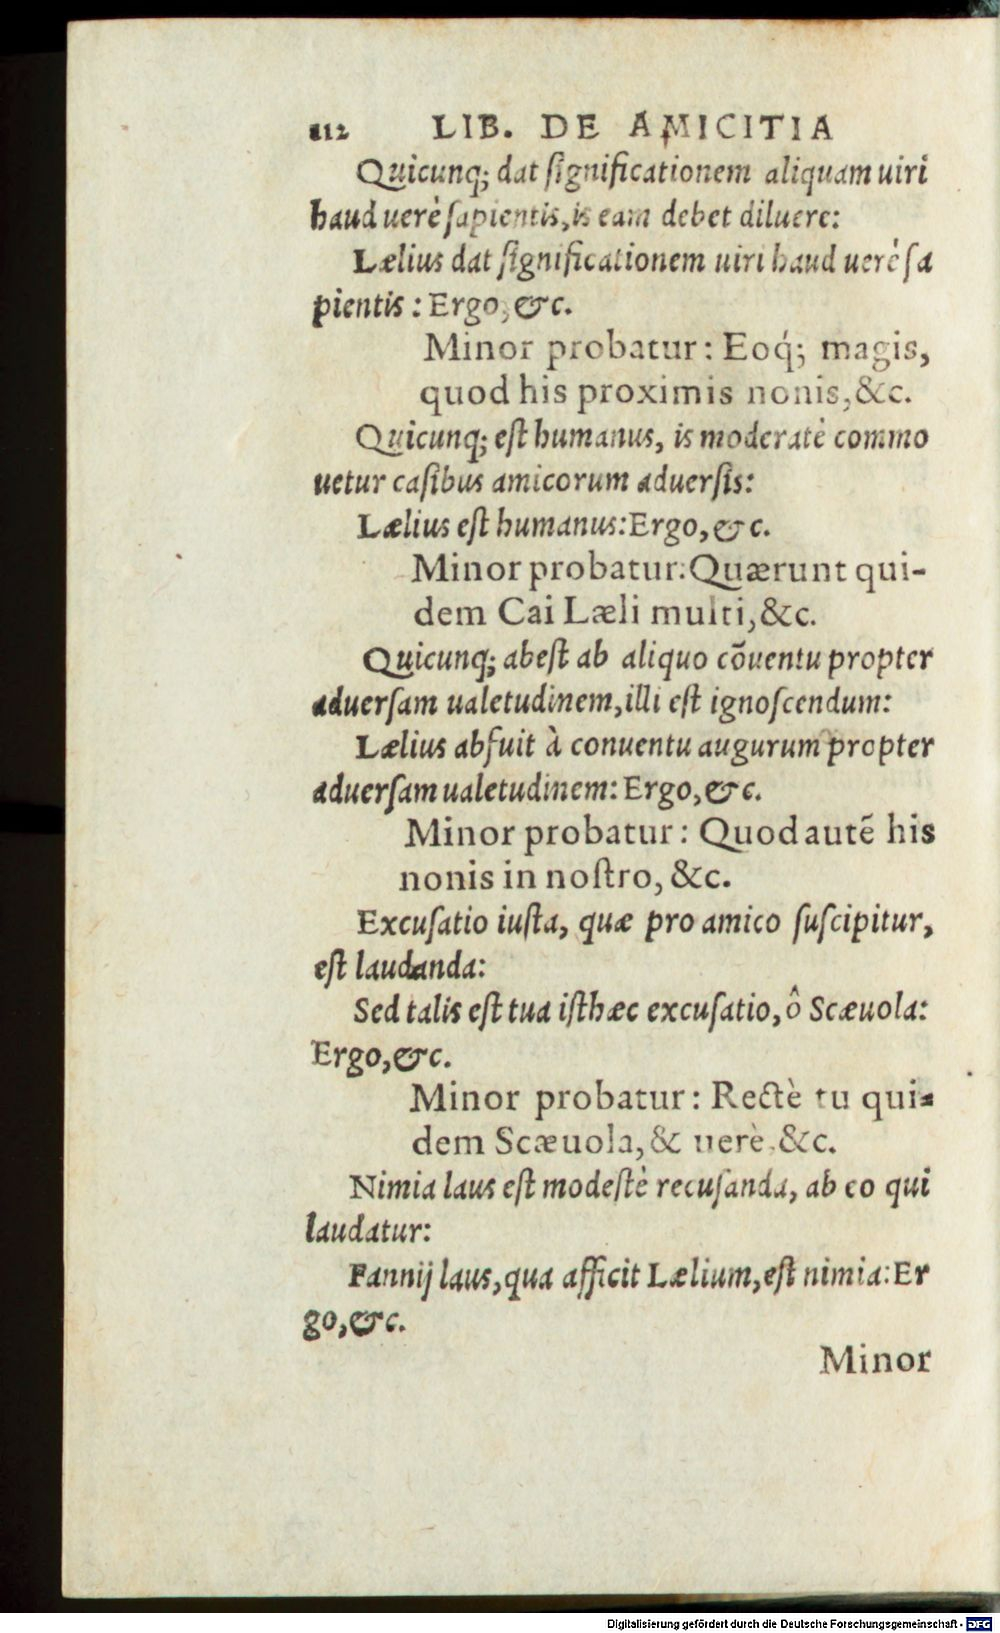 112 LIB. DE AMICITIA
Quicunq; dat ſignificationem aliquam uiri
haud uerè ſapientis, is eam debet diluere:
Lælius dat ſignificationem uiri haud uerè ſa
pientis: Ergo, &c.
Minor probatur: Eoq́; magis,
quod his proximis nonis, &c.
Quicunq; eſt humanus, is moderatè commo
uetur caſibus amicorum aduerſis:
Lælius eſt humanus: Ergo, &c.
Minor probatur: Quærunt qui-
dem Cai Læli multi, &c.
Quicunq; abeſt ab aliquo cōuentu propter
aduerſam ualetudinem, illi eſt ignoſcendum:
Lælius abfuit à conuentu augurum propter
aduerſam ualetudinem: Ergo, &c.
Minor probatur: Quod autē his
nonis in noſtro, &c.
Excuſatio iuſta, quæ pro amico ſuſcipitur,
eſt laudanda:
Sed talis eſt tua iſthæc excuſatio, ô Scæuola:
Ergo, &c.
Minor probatur: Rectè tu qui-
dem Scæuola, & uerè, &c.
Nimia laus eſt modeſtè recuſanda, ab eo qui
laudatur:
Fannij laus, qua afficit Lælium, eſt nimia: Er
go, &c.
Minor
Digitalisierung gefördert durch die Deutsche Forschungsgemeinschaft - DFG